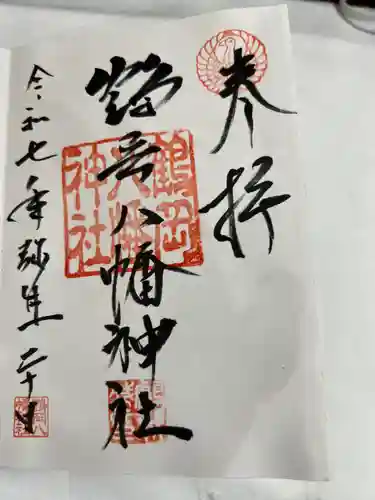 奉拝
鶴岡八幡神社
鶴岡八幡神社
令和七年弥生二十日